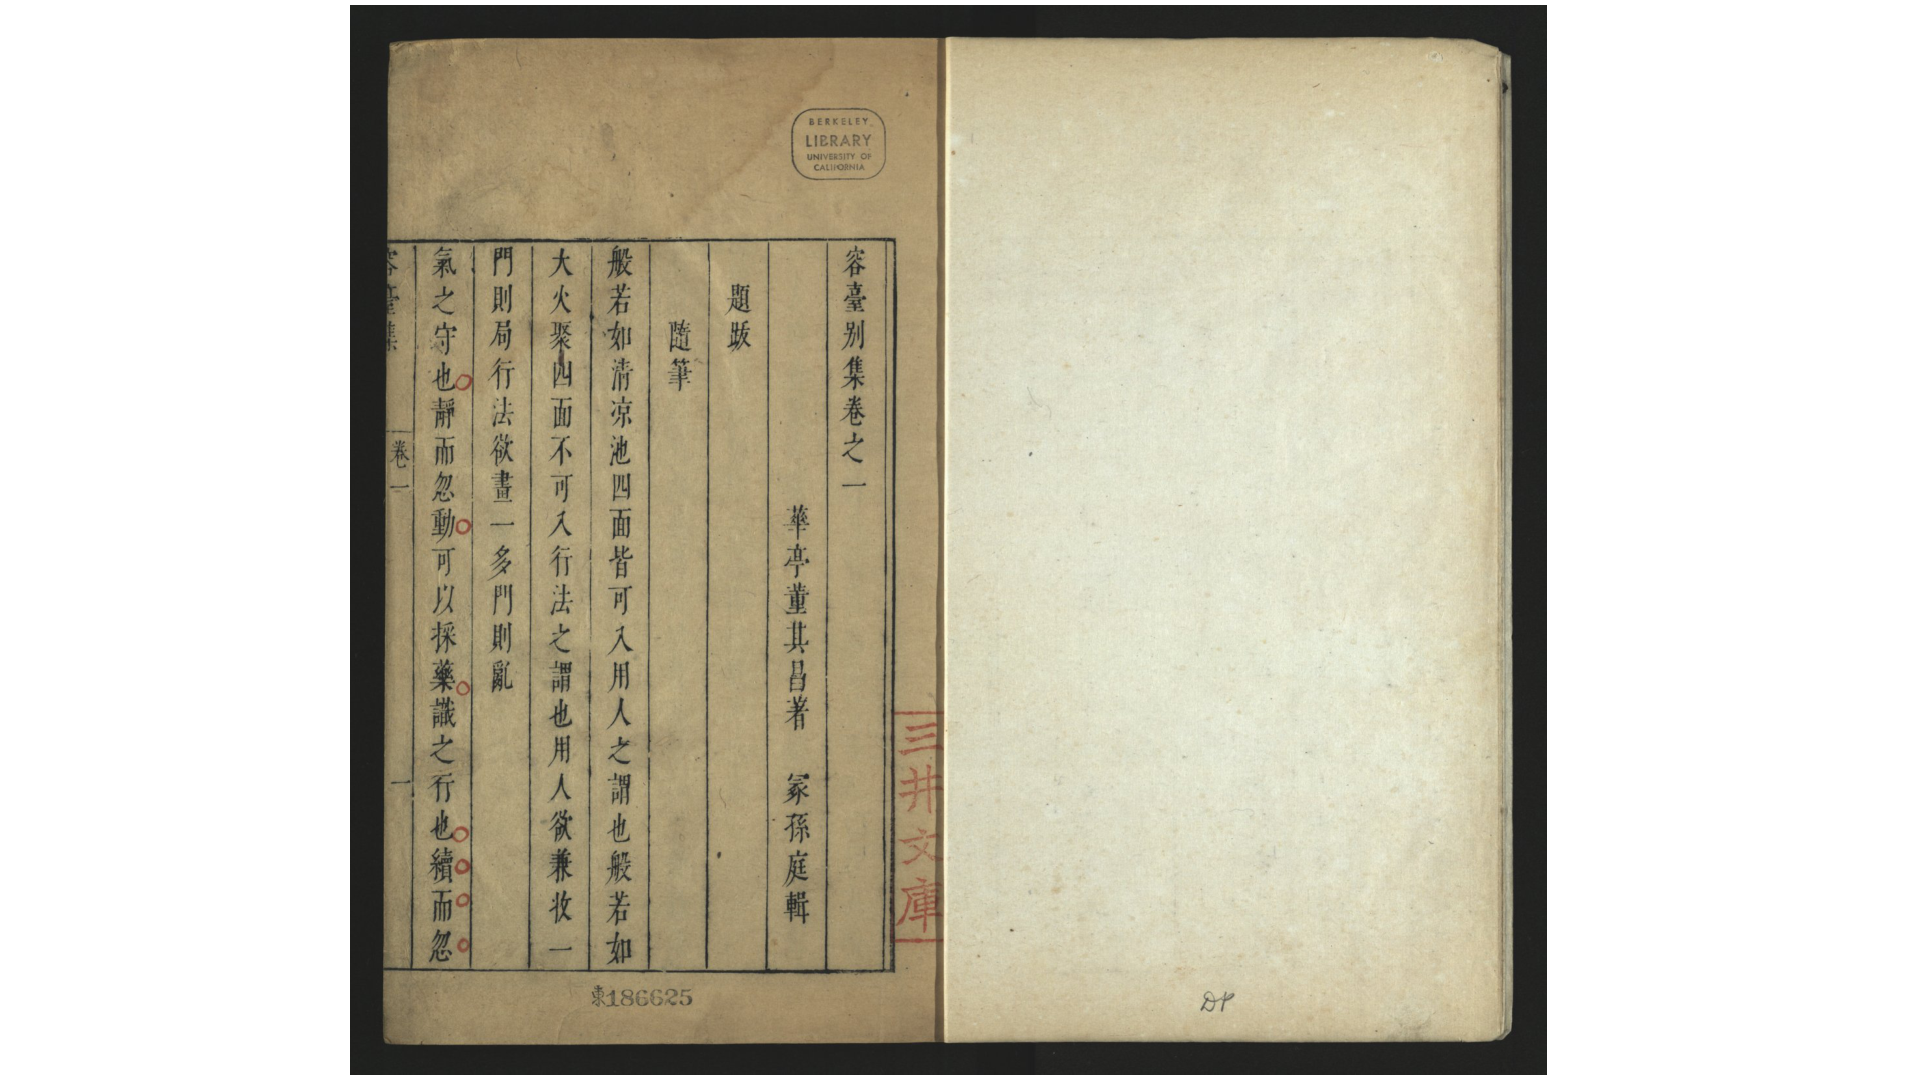 容臺別集卷之一
華亭董其昌著　冢孫庭輯
題跋
隨筆
般若如清凉池四面皆可入用人之謂也般若如
大火聚四面不可入行法之謂也用人欲兼收一
門則局行法欲畫一多門則亂
氣之守也靜而忽動可以採藥識之行也續而忽
容臺集　卷一　一
BERKELEY
LIBRARY
UNIVERSITY OF
CALIFORNIA
三井文庫
東186625